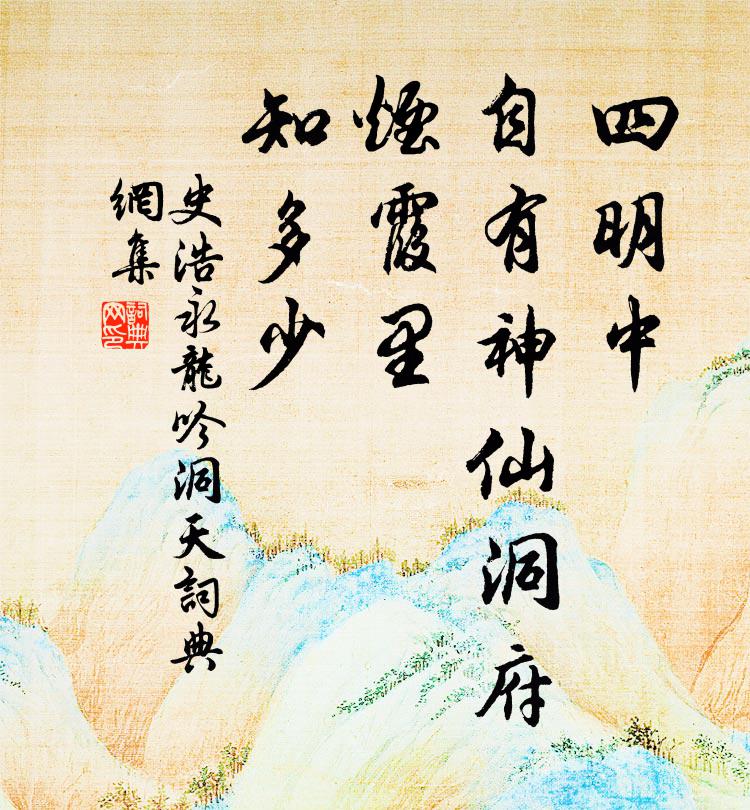 四明中
自有神仙洞府
煙霞里
知多少
史浩永龍吟洞天詞典
網集
詞典
网印